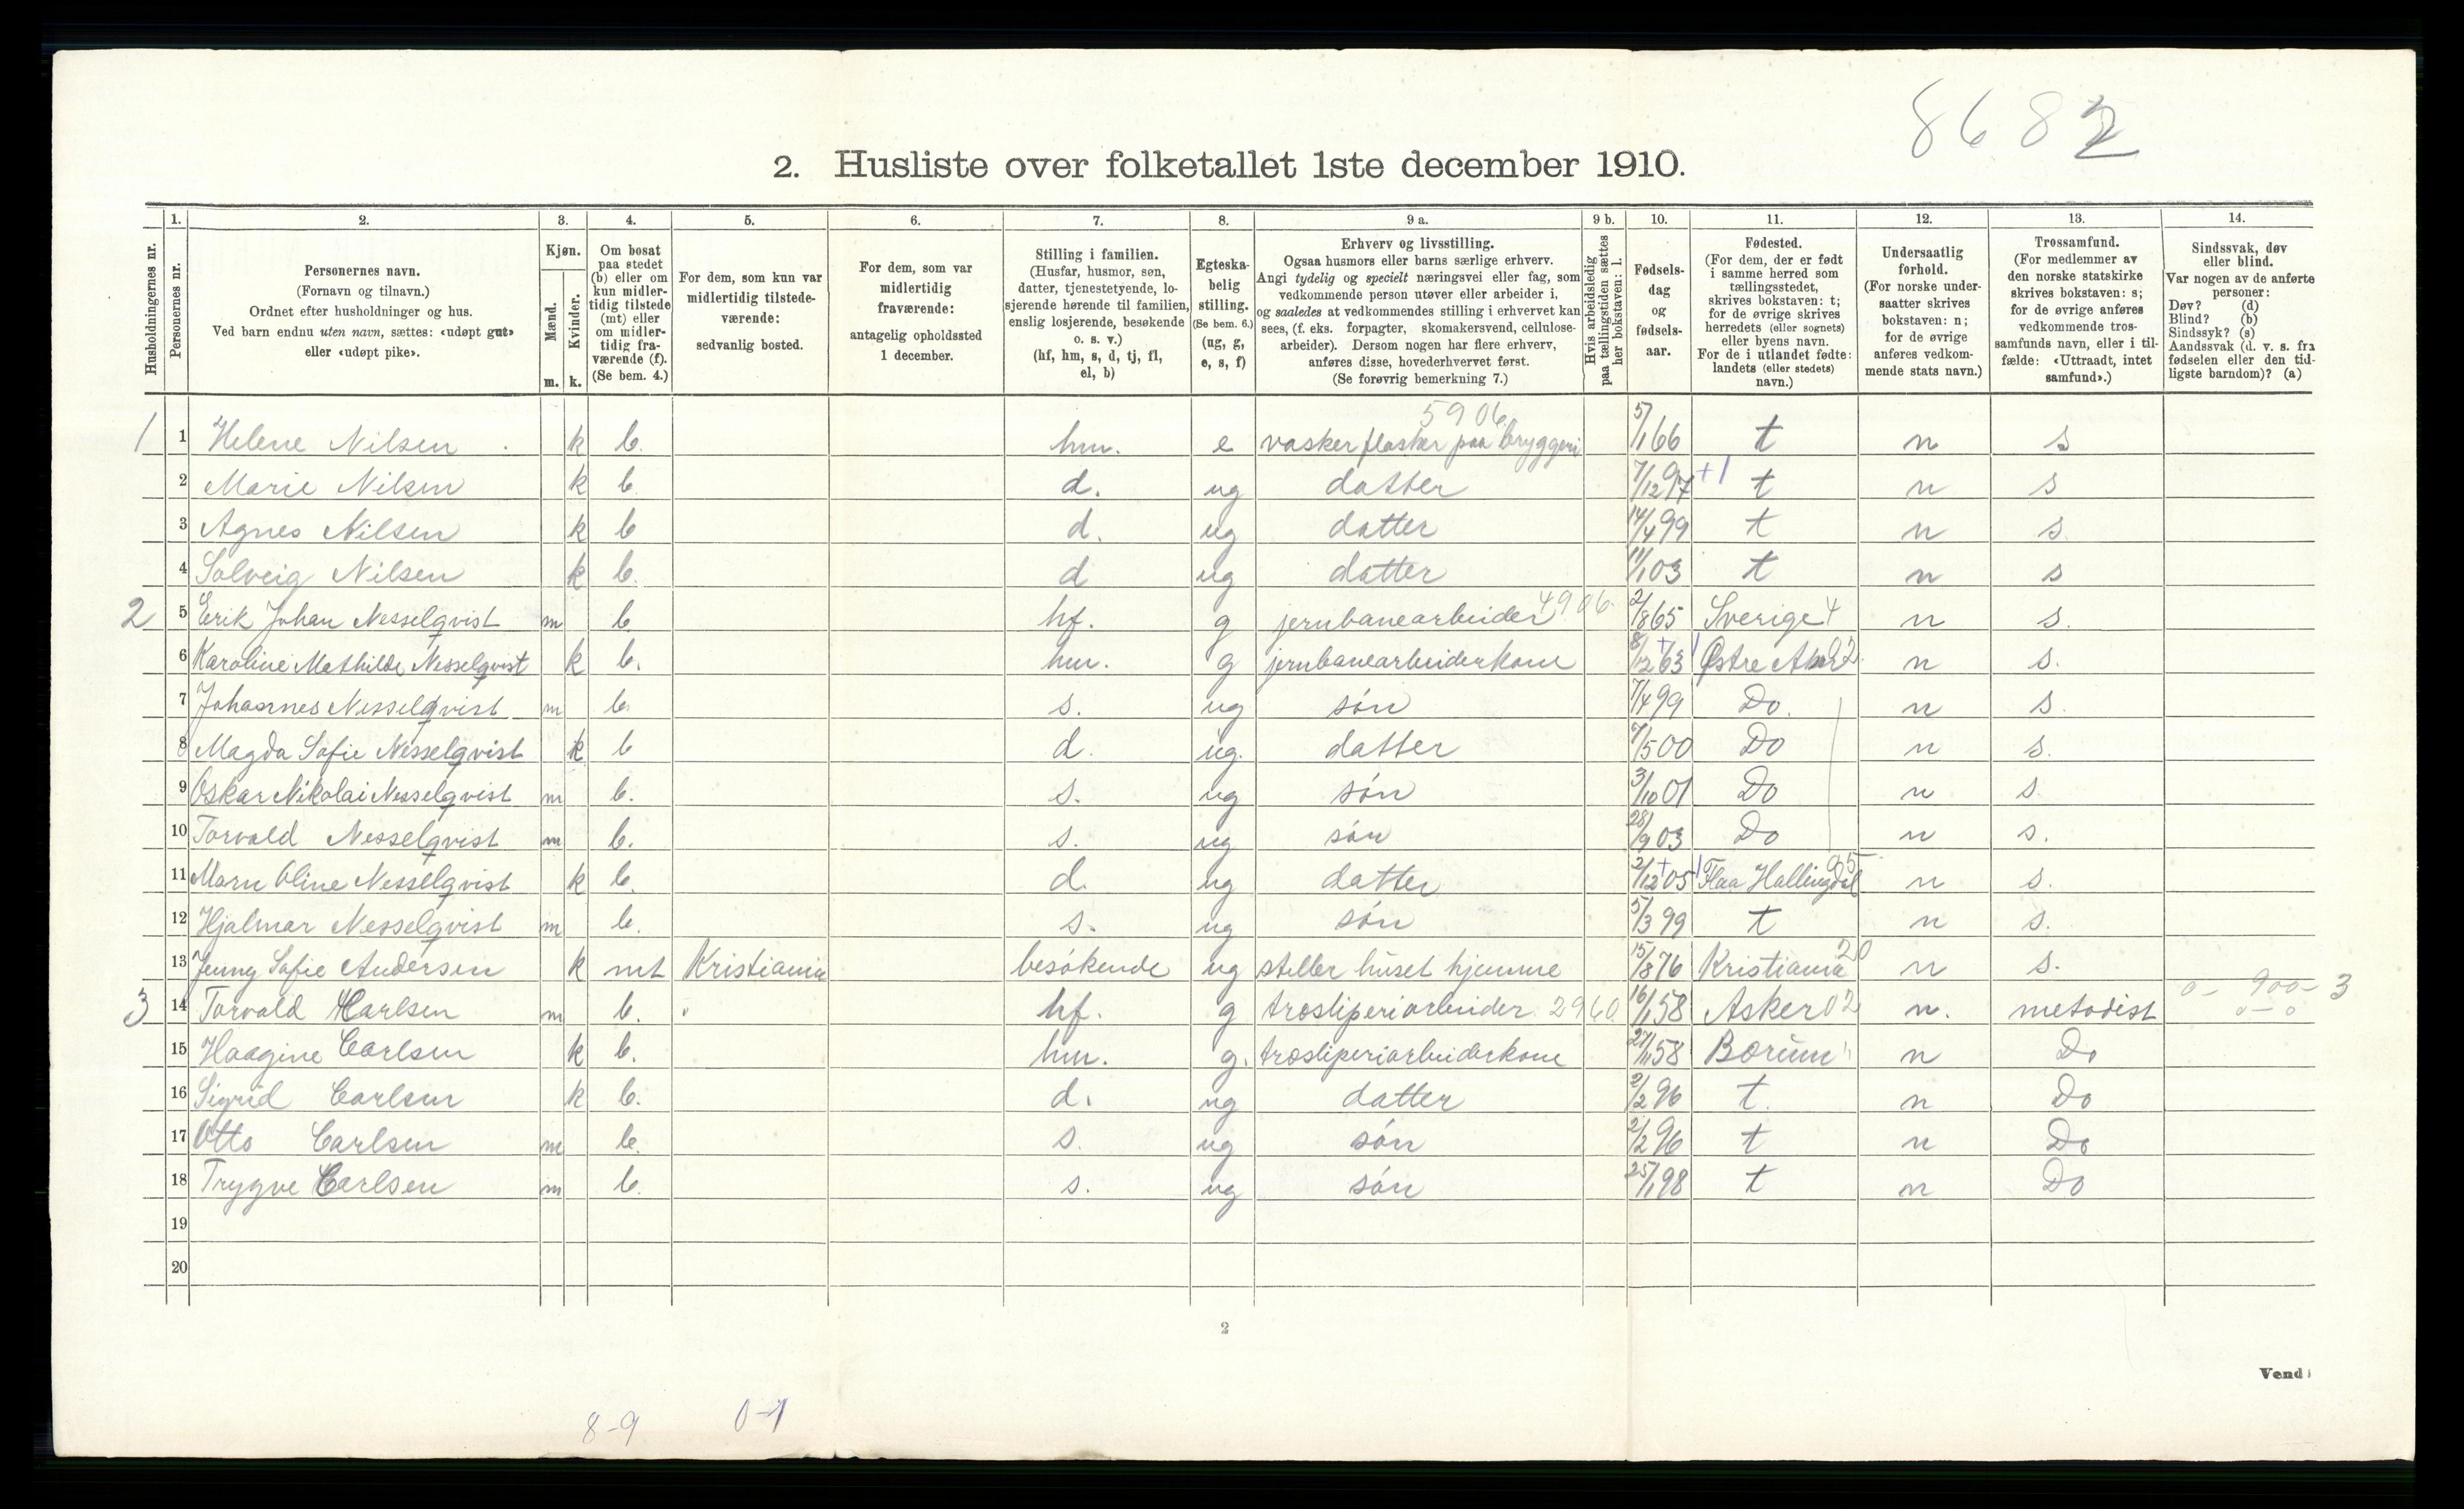 8682
2. Husliste over folketallet 1ste december 1910.
Husholdningernes nr.
1. Personernes nr.
2. Personernes navn. (Fornavn og tilnavn.) Ordnet efter husholdninger og hus. Ved barn endnu uten navn, sættes: «udøpt gut» eller «udøpt pike».
3. Kjøn. Mænd. m. Kvinder. k.
4. Om bosat paa stedet (b) eller om kun midlertidig tilstede (mt) eller om midlertidig fraværende (f). (Se bem. 4.)
5. For dem, som kun var midlertidig tilstedeværende: sedvanlig bosted.
6. For dem, som var midlertidig fraværende: antagelig opholdssted 1 december.
7. Stilling i familien. (Husfar, husmor, søn, datter, tjenestetyende, losjerende hørende til familien, enslig losjerende, besøkende o. s. v.) (hf, hm, s, d, tj, fl, el, b)
8. Egteskabelig stilling. (Se bem. 6.) (ug, g, e, s, f)
9 a. Erhverv og livsstilling. Ogsaa husmors eller barns særlige erhverv. Angi tydelig og specielt næringsvei eller fag, som vedkommende person utøver eller arbeider i, og saaledes at vedkommendes stilling i erhvervet kan sees, (f. eks. forpagter, skomakersvend, cellulosearbeider). Dersom nogen har flere erhverv, anføres disse, hovederhvervet først. (Se forøvrig bemerkning 7.)
9 b. Hvis arbeidsledig paa tællingstiden sættes her bokstaven: l.
10. Fødselsdag og fødselsaar.
11. Fødested. (For dem, der er født i samme herred som tællingsstedet, skrives bokstaven: t; for de øvrige skrives herredets (eller sognets) eller byens navn. For de i utlandet fødte: landets (eller stedets) navn.)
12. Undersaatlig forhold. (For norske undersaatter skrives bokstaven: n; for de øvrige anføres vedkommende stats navn.)
13. Trossamfund. (For medlemmer av den norske statskirke skrives bokstaven: s; for de øvrige anføres vedkommende trossamfunds navn, eller i tilfælde: «Uttraadt, intet samfund».)
14. Sindssvak, døv eller blind. Var nogen av de anførte personer: Døv? (d) Blind? (b) Sindssyk? (s) Aandssvak (d. v. s. fra fødselen eller den tidligste barndom)? (a)
5906
1 1 Helene Nilsen k b. hm. e vasker flasker paa bryggeri 5/1 66 t n s
2 Marie Nilsen k b d. ug datter 7/12 97 +1 t n s
3 Agnes Nilsen k b d. ug datter 14/4 99 t n s
4 Solveig Nilsen k b. d ug datter 11/1 03 t n s
2 5 Erik Johan Nesselqvist m b. hf. g jernbanearbeider 4906 2/8 65 Sverige 4 n s.
6 Karoline Mathilde Nesselqvist k b. hm. g jernbanearbeiderkone 8/12 63 +1 Østre Aker 02 n s.
7 Johannes Nesselqvist m b. s. ug søn 7/4 99 Do. n s.
8 Magda Sofie Nesselqvist k b d. ug. datter 7/5 00 Do n s.
9 Oskar Nikolai Nesselqvist m b. s. ug søn 3/10 01 Do n s.
10 Torvald Nesselqvist m b. s. ug søn 28/9 03 Do n s.
11 Marn Oline Nesselqvist k b. d. ug datter 2/12 05 +1 Flaa Hallingdal 05 n s.
12 Hjalmar Nesselqvist m b. s. ug søn 5/3 99 t n s.
13 Jenny Sofie Andersen k mt Kristiania besøkende ug steller huset hjemme 15/8 76 Kristiania 20 n s.
3 14 Torvald Carlsen m b. hf. g træsliperiarbeider 2960 16/1 58 Asker 02 n. metodist 0- 900- 3 0-0
15 Haagine Carlsen k b. hm. g. træsliperiarbeiderkone 27/11 58 Bærum " n Do
16 Sigrid Carlsen k b. d. ug datter 2/2 96 t. n Do
17 Otto Carlsen m b. s. ug søn 2/2 96 t n Do
18 Trygve Carlsen m b. s. ug søn 25/1 98 t n Do
19
20
2
Vend!
8-9 0-1